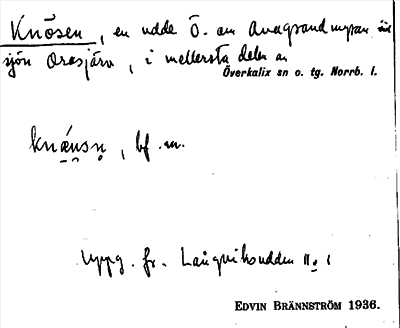 Knösen, en udde Ö. om Avagrandmyran in
sjön Orasjärv, i mellersta delen av
Överkalix sn o. tg. Norrb. l.
knǽnsn, bf. m.
Uppg. fr. Långviksudden n:o 1
EDVIN BRÄNNSTRÖM 1936.